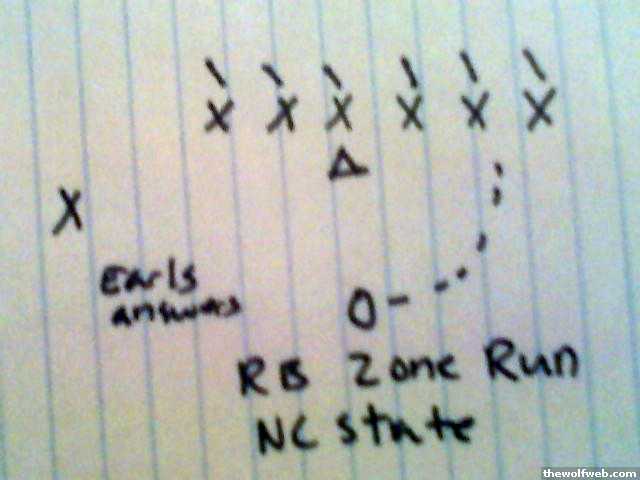 X X X X X X
X
Earls
answers
O
RB Zone Run
NC state
thewolfweb.com